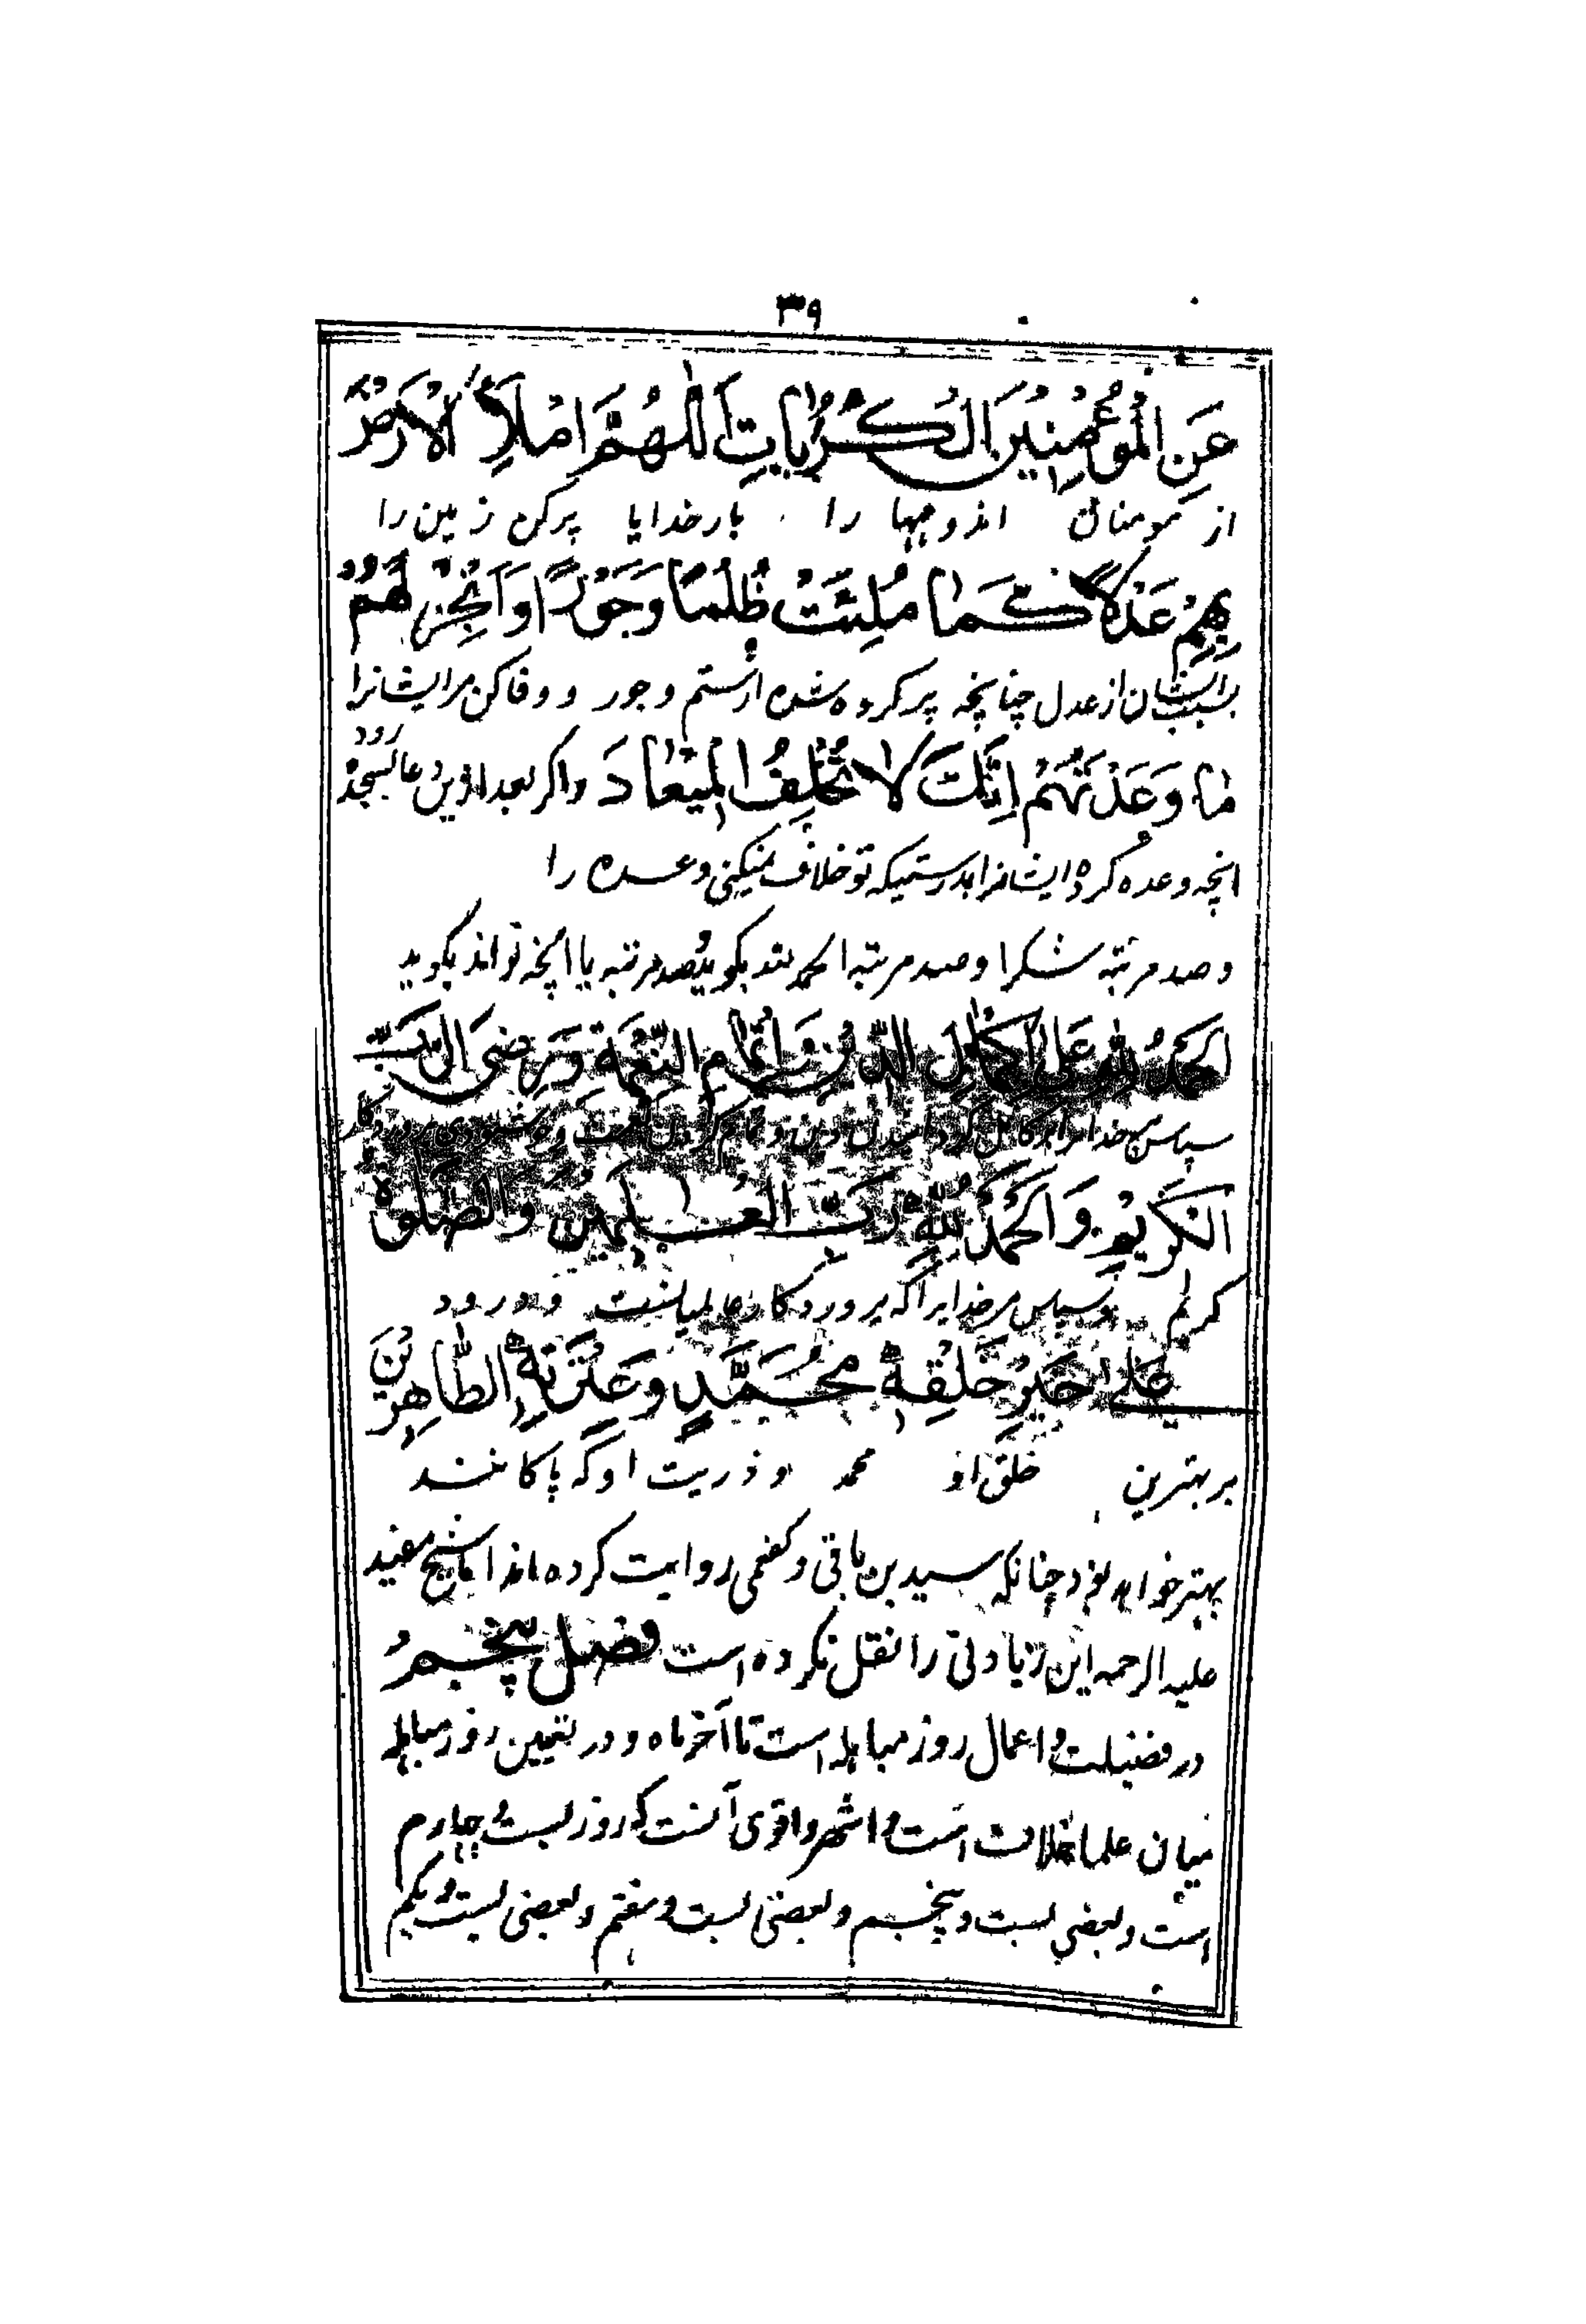 ۳۹
عَنِ الْمُؤْمِنِیْنَ الْکُرُبَاتِ اَللّٰهُمَّ امْلَأِ الْاَرْضَ
از مومنان اندوهها را بار خدایا پر کن زمین را
بِهِمْ عَدْلًا کَمَا مُلِئَتْ ظُلْمًا وَجَوْرًا وَاَنْجِزْ لَهُمْ
بسبب ایشان از عدل چنانچه پر کرده شده از ستم و جور و وفا کن مر ایشانرا
مَا وَعَدْتَهُمْ اِنَّکَ لَا تُخْلِفُ الْمِیْعَادَ و اگر بعد ازین دعا بسجده رود
انچه وعده کردهٔ ایشانرا بدرستیکه تو خلاف نمیکنی وعده را
و صد مرتبه شکرا و صد مرتبه الحمد لله بگوید و صد مرتبه یا انچه تواند بگوید
اَلْحَمْدُ لِلّٰهِ عَلٰی اِکْمَالِ الدِّیْنِ وَاِتْمَامِ النِّعْمَةِ وَرِضَی الرَّبِّ
سپاس مر خدا را بر کامل گردانیدن دین و تمام کردن نعمت و خوشنودی پروردگار
الْکَرِیْمِ وَالْحَمْدُ لِلّٰهِ رَبِّ الْعٰلَمِیْنَ وَالصَّلٰوةُ
کریم و سپاس مر خدایرا که پروردگار عالمیانست و درود
عَلٰی خَیْرِ خَلْقِهٖ مُحَمَّدٍ وَعِتْرَتِهِ الطَّاهِرِیْنَ
بر بهترین خلق او محمد و ذریت او که پاکانند
بهتر خواهد بود چنانکه سید بن باقی و کفعمی روایت کرده اند اما شیخ مفید
علیه الرحمه این زیادتی را نقل نکرده است فصل پنجم
در فضیلت و اعمال روز مباهله است تا آخر ماه و در تعیین روز مباهله
میان علما خلاف است و اشهر و اقوی آنست که روز بیست و چهارم
است و بعضی بیست و پنجم و بعضی بیست و هفتم و بعضی بیست و یکم